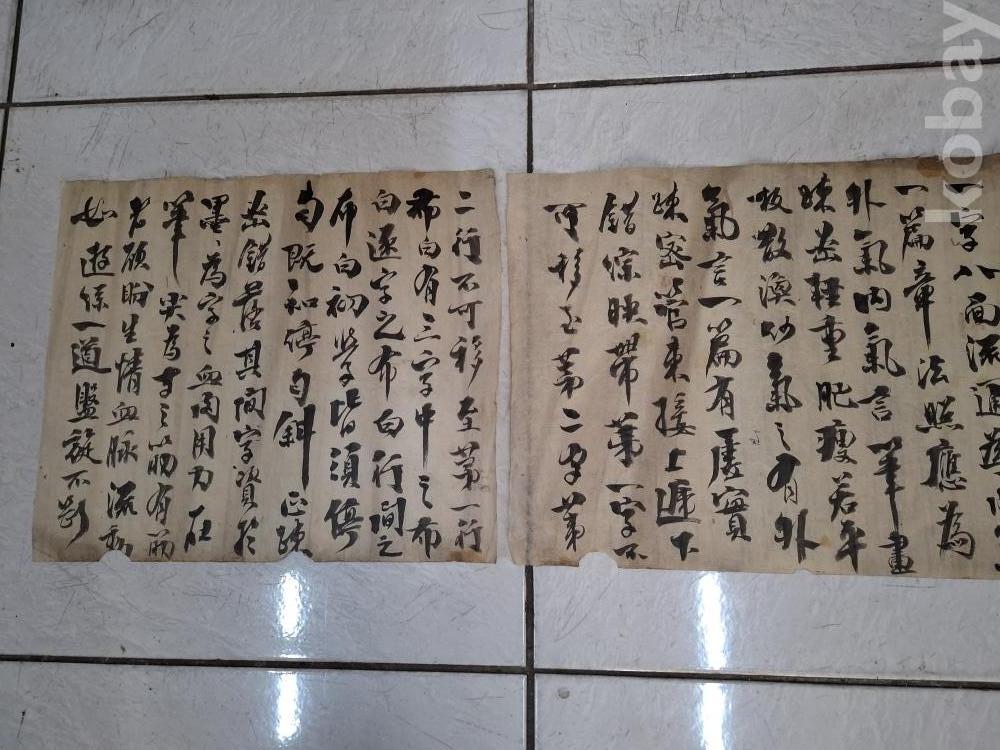 一字八面流通
一篇章法照應為
外氣內氣言筆畫
疎密輕重肥瘦若平
散渙氣之有外
氣言一篇有虛實
疎密管束接上遞下
錯綜映帶第一字不
可移至第二字第
二行不可移至第一行
布白有三字中之布
白逐字之布白行間之
布白初學皆須停
勻既知停勻斜正疎
密錯落其間字資於
墨〻為字之血用力在
筆尖為字之筋有筋
者顧盼生情血脉流動
如遊絲一道盤旋不斷
kobay